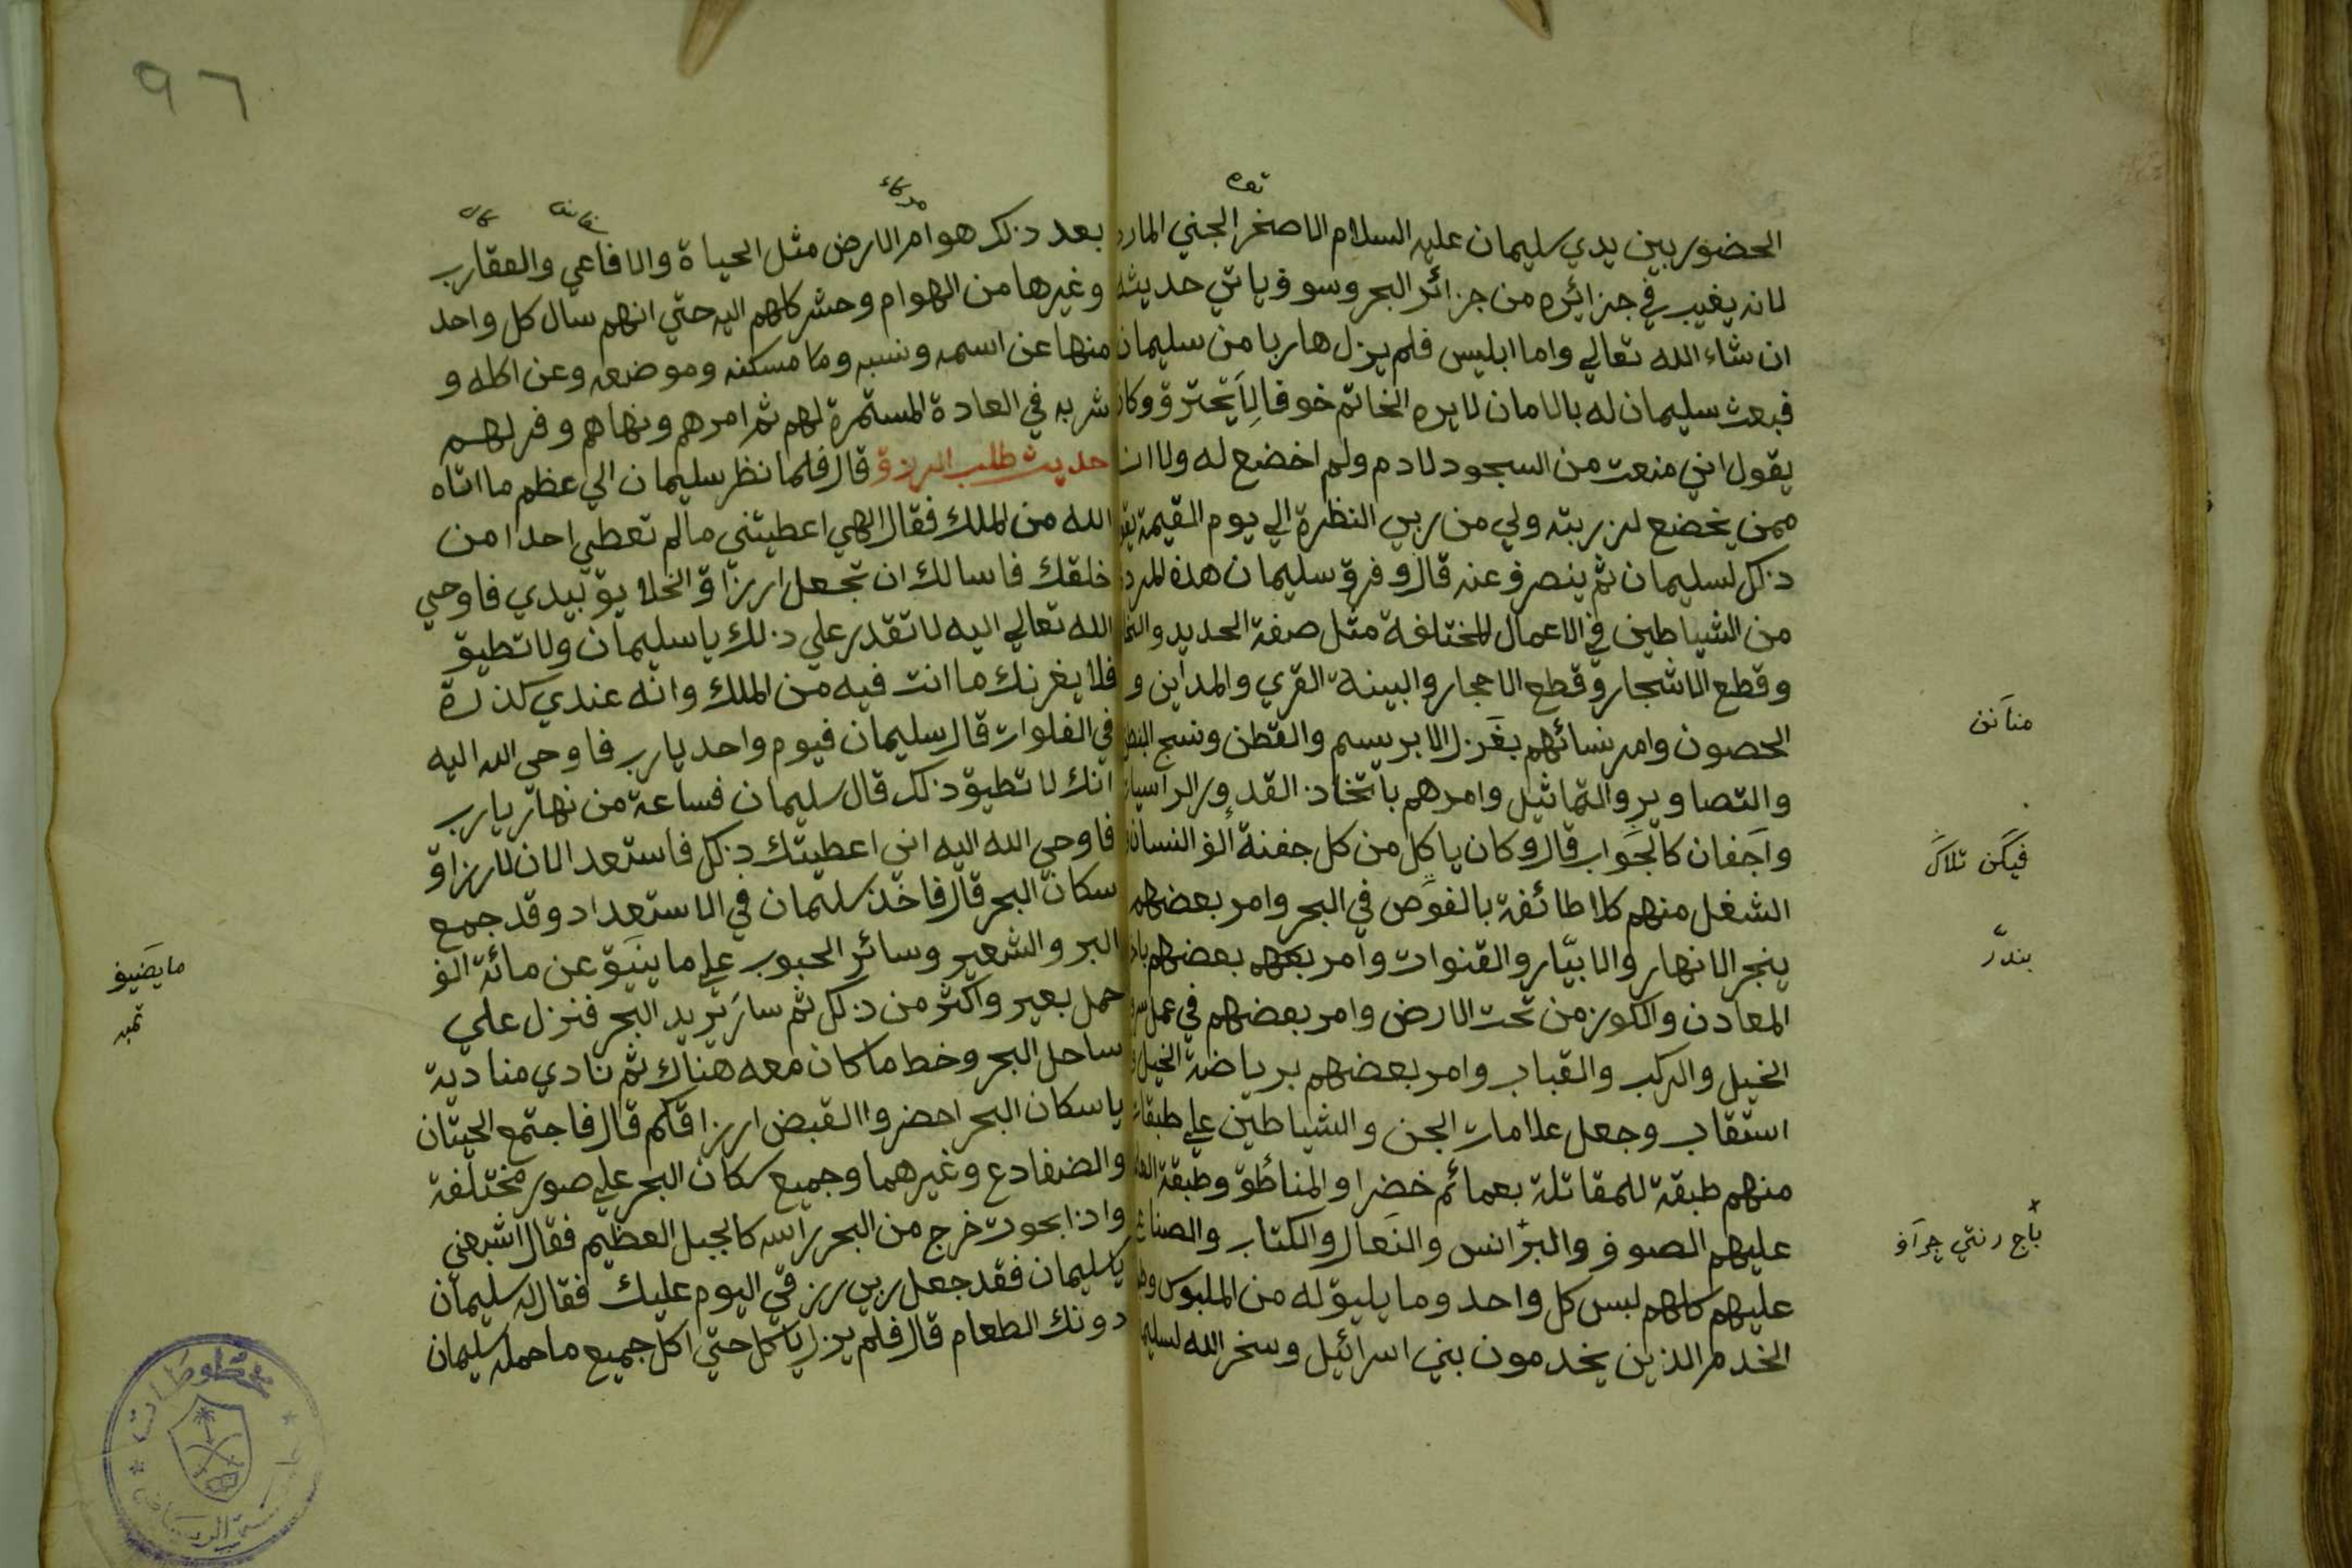 الحضور بين يدي سليمان عليه السلام الا صخر الجني المارد
لانه يغيب في جزائره من جزائر البحر وسوف ياتي حديثه
ان شاء الله تعالي واما ابليس فلم يزل هاربا من سليمان
فبعث سليمان له بالامان لا يره الخاتم خوفا لِأَ يحترق وكان
يقول اني منعت من السجود لادم ولم اخضع له ولا ان
ممن يخضع لذريته ولي من ربي النظرة الي يوم القيمة يقو
ذلك لسليمان ثم ينصرف عنه قال وفرق سليمان هذه المرد
من الشياطين في الاعمال المختلفة مثل صفة الحديد والنحا
وقطع الاشجار وقطع الاحجار والبينة القري والمداين و
الحصون وامر نسائهم بغَزل الابريسم والقطن ونسج
والتصاوير والتماثيل وامرهم باتخاذ القدور الراسيات
واَجفان كالجَوابِ قال وكان ياكل من كل جفنة الف انسان
الشغل منهم كلا طائفة بالغوَص في البحر وامر بعضهم
ينجر الانهار والابيّار والقنوات وامر بعضهم
المعادن والكوز من تحت الارض وامر بعضهم في عمل
الخيل والركب والقباب وامر بعضهم برياضة الخيل
استقاب وجعل علامات الجن والشياطين علي طبقات
منهم طبقة للمقاتلة بعمائم خضرا والمناطق وطبقة
عليهم الصوف والبرّانس والنَعال والكتاب والصناع
عليهم كلهم لبس كل واحد وما يليق له من الملبوس
الخدم الذين يخدمون بني اسرائيل وسخر الله لسليما
مناَنن
فيڬن تلاڬ
بندرّ
باج رنتي چراَف
٩٦
بعد ذلك هوام الارض مثل الحياة والافاعي والعقارب
وغيرها من الهوام وحشر كلهم اليه حتي انهم سال كل واحد
منها عن اسمه ونسبه وما مسكنه وموضعه وعن اكله و
شربه في العادة المستمرة لهم ثم امرهم ونهاهم وفر لهم
حديث طلب الرزق قال فلما نظر سليمان الي عظم ما اتاه
الله من الملك فقال الهي اعطيتني مالم تعطي احدا من
خلقك فاسالك ان تجعل ارزاق الخلايق بيدي فاوحي
الله تعالي اليه لا تقدر علي ذلك يا سليمان ولا تطيق
فلا يغرنك ما انت فيه من الملك وانه عندي كذرة
في الفلوات قال سليمان فيوم واحد يارب فاوحي الله اليه
انك لا تطيق ذلك قال سليمان فساعة من نهار يارب
فاوحي الله اليه اني اعطيتك ذلك فاستعد الان لارزاق
سكان البحر قال فاخذ سليمان في الاستعداد وقد جمع
البر والشعير وسائر الحبوب علي ما ينيَق عن مائة الف
حمل بعير واكثر من ذلك ثم سار يريد البحر فنزل علي
ساحل البحر وخط ما كان معه هناك ثم نادي مناديه
يا سكان البحر احضروا القبض ارزاقكم قال فاجتمع الحيتان
والضفادع وغيرهما وجميع سكان البحر علي صور مختلفة
واذا بحوت خرج من البحر راسه كالجبل العظيم فقال اشبعني
يا سليمان فقد جعل ربي رزقي اليوم عليك فقال له سليمان
دونك الطعام قال فلم يزل ياكل حتي اكل جميع ما حمله سليمان
مايضيف
مخطوطات